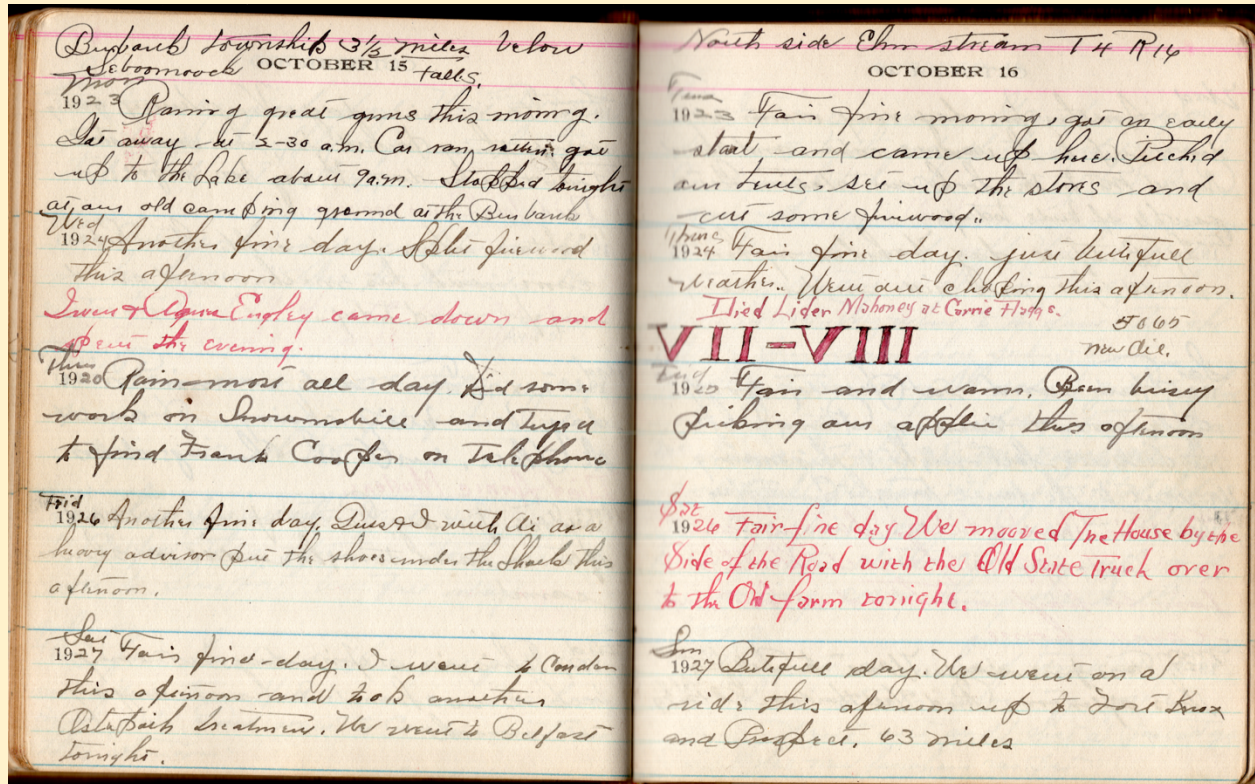 Burbank township 3 1/3 miles below
Seboomoock Falls.
OCTOBER 15
Mon
1923 Raning great guns this moring.
Got away at 5-30 a.m. Car ran got
up to the Lake about 9 a.m. Stopped
at our old camping ground at the Burbank
Wed
1924 Another fine day. Split firewood
this afternoon
came down and
spent the evening.
Thurs
1920 Rain most all day. Did some
work on Snowmobile and tryed
to find Frank Cooper on Telephone
Frid
1926 Another fine day. I with Al as a
heavy advisor put the shoes under the Shack this
afternoon.
Sat
1927 Fair fine day. I went to Camden
this afternoon and took another
Ostepath treatment. We went to Belfast
tonight.
North side Elm stream T4 R16
OCTOBER 16
Tues
1923 Fair fine moring, got an early
start and came up here. Pitched
our tents, set up the stoves and
cut some firewood.
Thurs
1924 Fair fine day. just butifull
weather. Went out this afternoon.
Died Lider Mahoney at Carrie Flaggs.
5065
New Oil.
VII-VIII
1925 Fair and warm. Been buisy
picking our apples this afternoon
Sat
1926 Fair fine day We mooved The House by the
Side of the Road with the Old State Truck over
to the Old farm tonight.
Sun
1927 Butifull day. We went on a
ride this afternoon up to Fort Knox
and Prospect. 63 miles